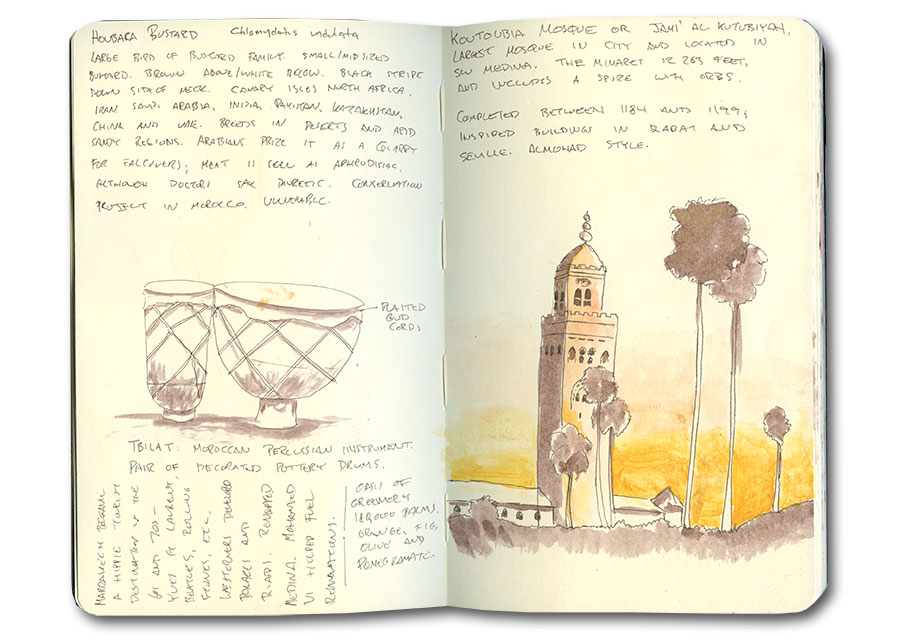 HOUBARA BUSTARD Chlamydotis undulata
LARGE BIRD OF BUSTARD FAMILY. SMALL/MIDSIZED
BUSTARD. BROWN ABOVE/WHITE BELOW. BLACK STRIPE
DOWN SIDE OF NECK. CANARY ISLES NORTH AFRICA.
IRAN SAUDI ARABIA, INDIA, PAKISTAN, KAZAKHSTAN,
CHINA AND UAE. BREEDS IN DESERTS AND ARID
SANDY REGIONS. ARABIANS PRIZE IT AS A QUARRY
FOR FALCONERS; MEAT IS SEEN AS APHRODISIAC,
ALTHOUGH DOCTORS SAY DIURETIC. CONSERVATION
PROJECT IN MOROCCO. VULNERABLE.
PLAITED
CORDS
TBILAT: MOROCCAN PERCUSSION INSTRUMENT.
PAIR OF DECORATED POTTERY DRUMS.
MARRAKECH BECAME
A HIPPIE TOURIST
DESTINATION IN THE
60s AND 70s –
YVES ST LAURENT,
BEATLES, ROLLING
STONES, ETC.
WESTERNERS
PALACES AND RENOVATED
RIADS. RENOVATED
MEDINA. MOHAMMED
VI HELPED FUEL
RENOVATIONS.
OASIS OF
GREENERY
180,000 PALMS.
ORANGE, FIG,
OLIVE AND
POMEGRANATE.
KOUTOUBIA MOSQUE OR JAMI' AL KUTUBIYAH,
LARGEST MOSQUE IN CITY AND LOCATED IN
SW MEDINA. THE MINARET IS 253 FEET,
AND INCLUDES A SPIRE WITH ORBS.
COMPLETED BETWEEN 1184 AND 1199;
INSPIRED BUILDINGS IN RABAT AND
SEVILLE. ALMOHAD STYLE.